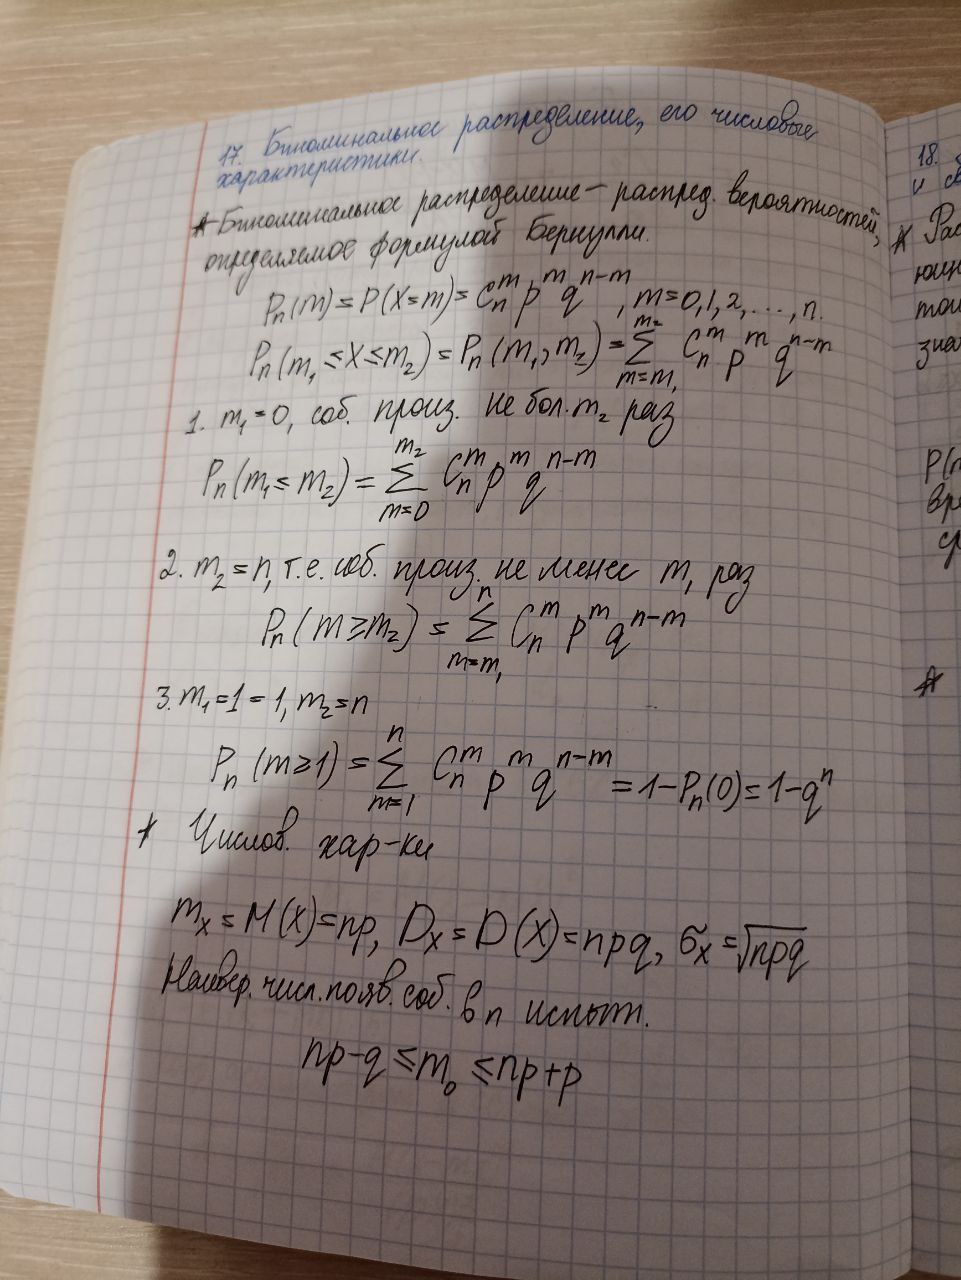 17. Биноминальное распределение, его числовые
характеристики.
* Биноминальное распределение – распред. вероятностей,
определяемое формулой Бернулли.
Pₙ(m) = P(X=m) = Cₙᵐ pᵐ qⁿ⁻ᵐ, m=0,1,2,...,n.
Pₙ(m₁ ≤ X ≤ m₂) = Pₙ(m₁, m₂) = ∑_{m=m₁}^{m₂} Cₙᵐ pᵐ qⁿ⁻ᵐ
1. m₁=0, соб. произ. не бол. m₂ раз
Pₙ(m₁ ≤ m₂) = ∑_{m=0}^{m₂} Cₙᵐ pᵐ qⁿ⁻ᵐ
2. m₂=n, т.е. соб. произ. не менее m₁ раз
Pₙ(m ≥ m₂) = ∑_{m=m₁}^{n} Cₙᵐ pᵐ qⁿ⁻ᵐ
3. m₁=1=1, m₂=n
Pₙ(m ≥ 1) = ∑_{m=1}^{n} Cₙᵐ pᵐ qⁿ⁻ᵐ = 1-Pₙ(0) = 1-qⁿ
* Числов. хар-ки
mₓ = M(X) = np, Dₓ = D(X) = npq, σₓ = √npq
Наивер. числ. появ. соб. в n испыт.
np-q ≤ m₀ ≤ np+p
18.
и
* Рас
P(